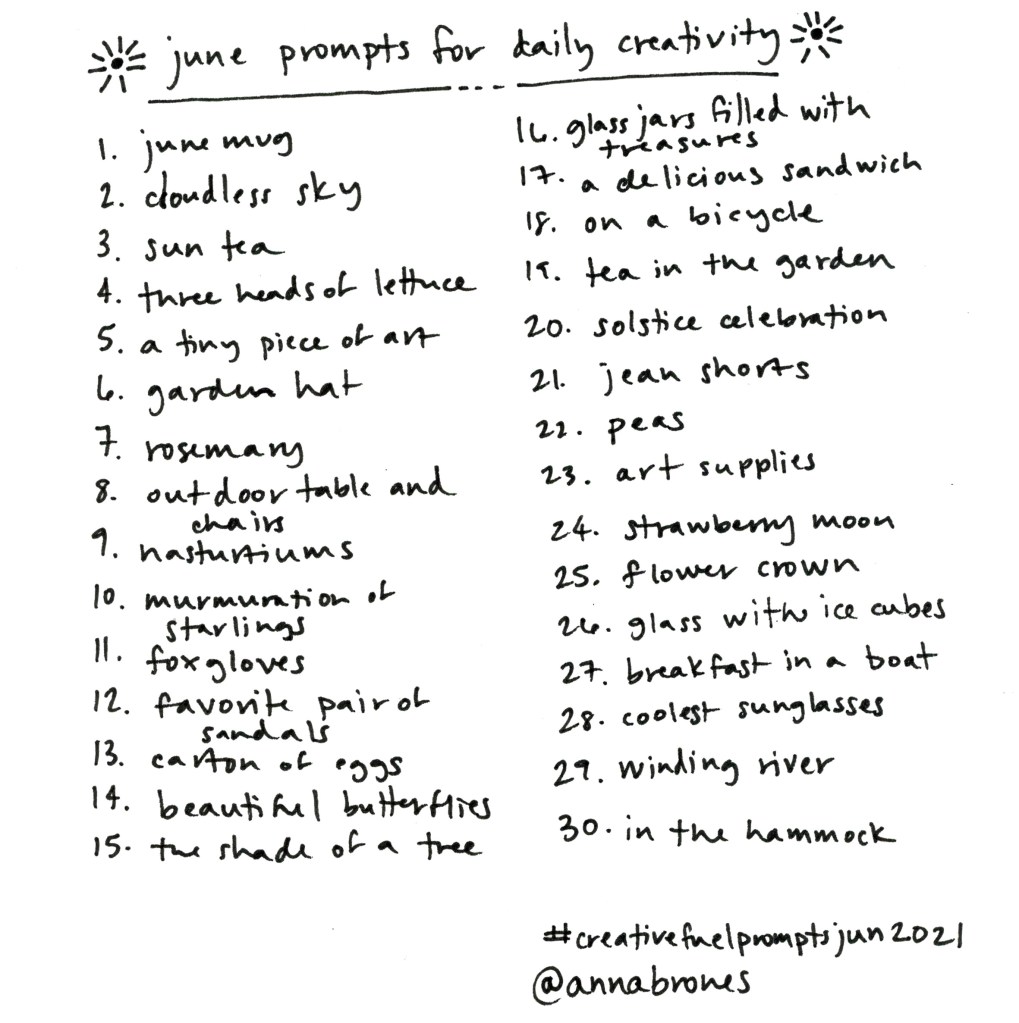 june prompts for daily creativity
1. june mug
2. cloudless sky
3. sun tea
4. three heads of lettuce
5. a tiny piece of art
6. garden hat
7. rosemary
8. outdoor table and
chairs
9. nasturtiums
10. murmuration of
starlings
11. foxgloves
12. favorite pair of
sandals
13. carton of eggs
14. beautiful butterflies
15. the shade of a tree
16. glass jars filled with
treasures
17. a delicious sandwich
18. on a bicycle
19. tea in the garden
20. solstice celebration
21. jean shorts
22. peas
23. art supplies
24. strawberry moon
25. flower crown
26. glass with ice cubes
27. breakfast in a boat
28. coolest sunglasses
29. winding river
30. in the hammock
#creativefuelpromptsjun2021
@annabrones